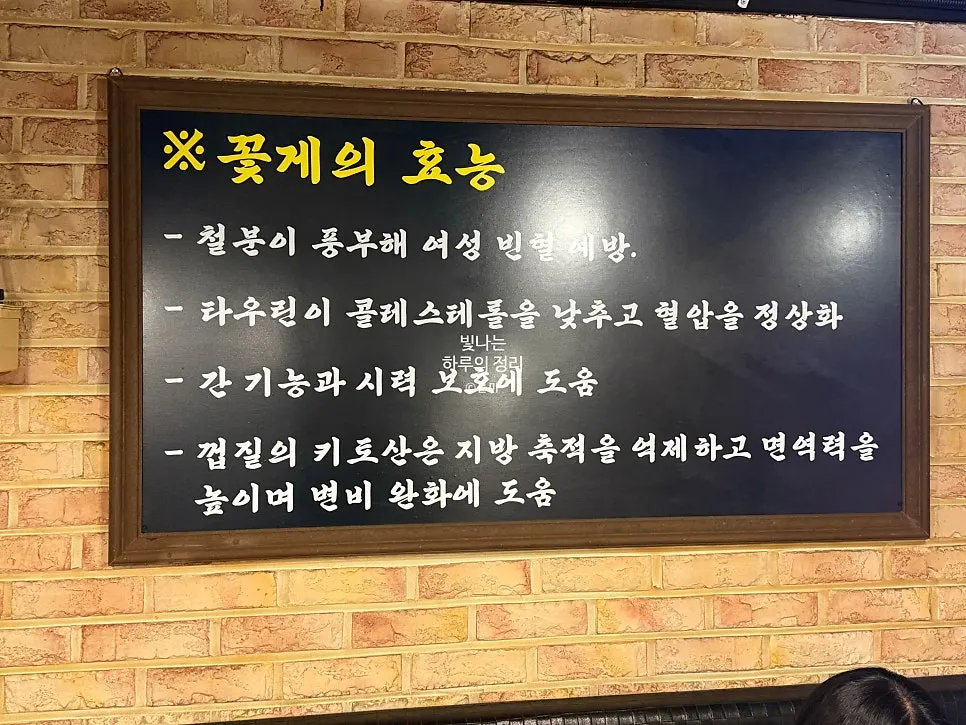 ※꽃게의 효능
- 철분이 풍부해 여성 빈혈 예방.
- 타우린이 콜테스테롤을 낮추고 혈압을 정상화
빛나는
하루의 정리
- 간 기능과 시력 보호에 도움
- 껍질의 키토산은 지방 축적을 억제하고 면역력을
높이며 변비 완화에 도움